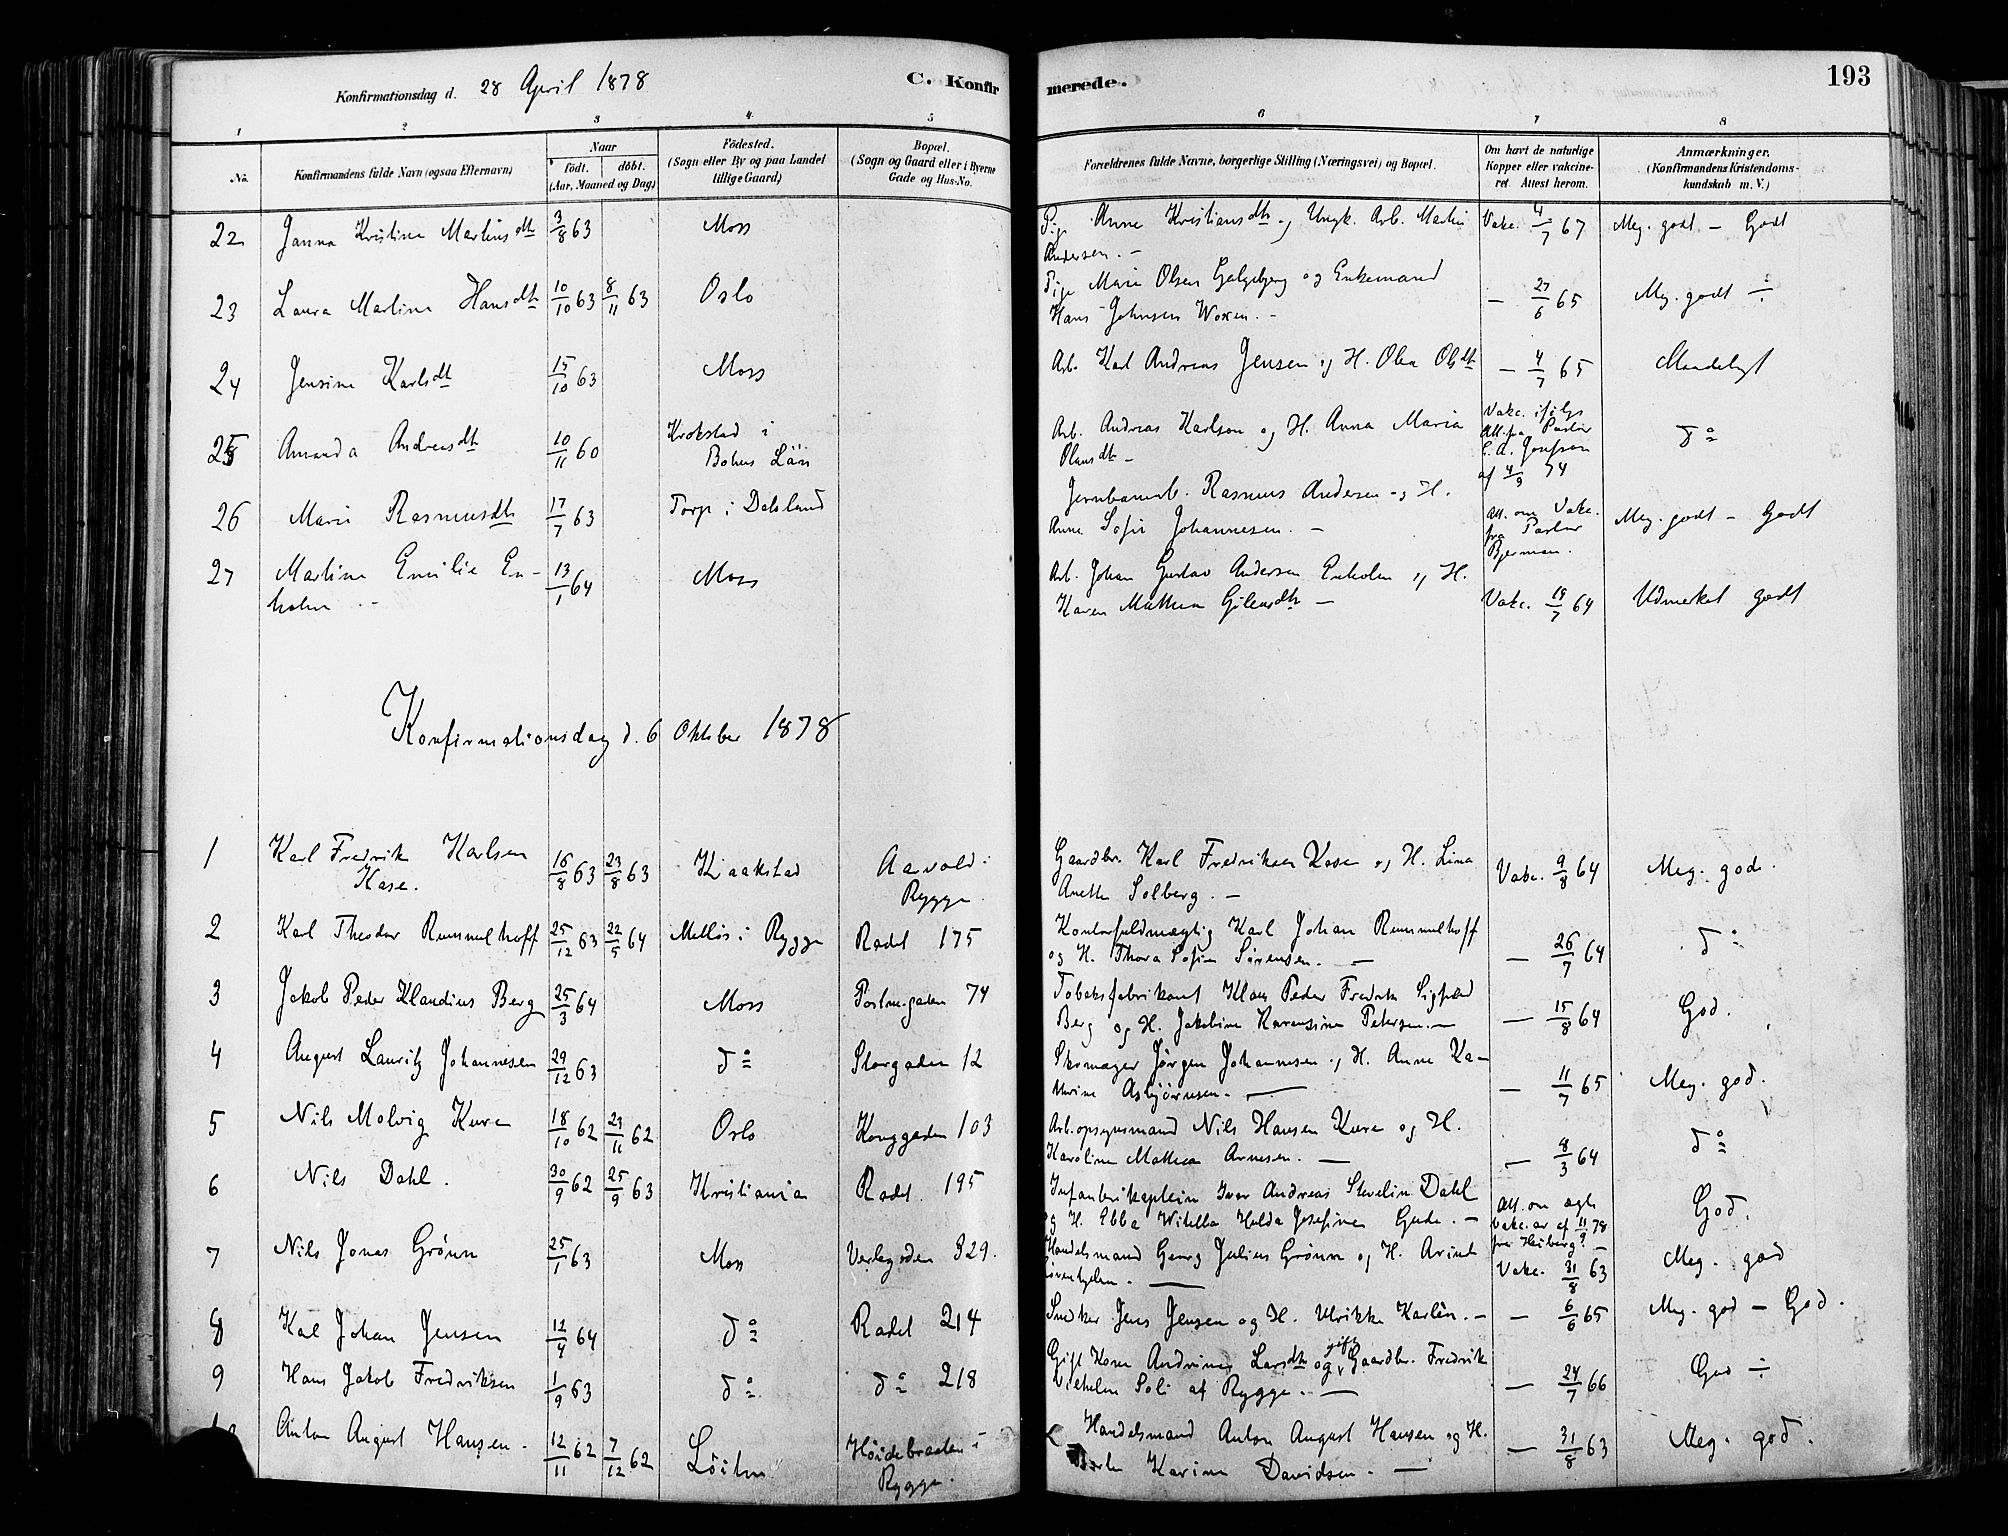 193
Konfirmationsdag d. 28 April 1878
C. Konfir
merede.
1 2 3 4 5 6 7 8
No.
Konfirmandens fulde Navn (ogsaa Efternavn)
Naar
födt. döbt.
(Aar, Maaned og Dag)
Födested.
(Sogn eller By og paa Landet
tillige Gaard)
Bopæl.
(Sogn og Gaard eller i Byerne
Gade og Hus-No.
Forældrenes fulde Navne, borgerlige Stilling (Næringsvei) og Bopæl.
Om havt de naturlige
Kopper eller vakcine-
ret. Attest herom.
Anmærkninger.
(Konfirmandens Kristendoms-
kundskab m. V.)
22 Janna Kristine Martinsdtr 3/8 63 Moss Pige Anne Kristiansdtr og Ungk. Arb. Martin Vakc. 4/7 67 Meg. godt - Godt
Andersen. -
23 Laura Martine Hansdtr 10/10 63 8/11 63 Oslo Pige Marie Olsen Galgebjerg og Enkemand - 27/6 65 Meg. godt ÷
Hans Johnsen Woxen. -
24 Jensine Karlsdtr 15/10 63 Moss Arb. Karl Andreas Jensen og H. Olea Olsdtr - 4/7 65 Maadeligt
25 Amanda Andreasdtr 10/11 60 Krokstad i Arb. Andreas Karlson og H. Anna Maria Vakc. ifølge do
Bohus Län Olausdtr - Att. fra Pastor
af 4/9 74
26 Marie Rasmusdtr 17/7 63 Torp i Dalsland Jernbanearb. Rasmus Andersen og H. Att. om Vakc. Meg. godt - Godt
Anne Sofie Johannesen. - fra Pastor
Bjerman.
27 Martine Emilie En- 13/1 64 Moss Arb. Johan Gustav Andersen Enholm og H.
holm - Karen Mathea Gilensdtr - Vakc. 19/7 64 Udmærket godt
Konfirmationsdag d. 6 Oktober 1878
1 Karl Fredrik Karlsen 16/8 63 23/8 63 Kraakstad Aarvold i Gaardbr. Karl Fredriksen Kase og H. Lina Vakc. 9/8 64 Meg. god.
Kase. Rygge. Anette Solberg. -
2 Karl Theodor Rummelhoff 25/12 63 22/5 64 Melløs i Rygge Radet 175 Kontorfuldmægtig Karl Johan Rummelhoff
og H. Thora Sofie Sørensen. - - 26/7 64 do
3 Jakob Peder Klaudius Berg 25/3 64 Moss Portnergaden 74 Tobaksfabrikant Klaus Peder Fredrik Sigfred
Berg og H. Jakobine Karensine Petersen. - - 15/8 64 God.
4 August Lauritz Johannesen 29/12 63 do Storgaden 12 Skomager Jørgen Johannesen og H. Anne Ka-
thrine Asbjørnsen. - - 11/7 65 Meg. god.
5 Nils Molvig Kure 18/10 62 23/11 62 Oslo Konggaden 103 Arb.opsynsmand Nils Hansen Kure og H.
Karoline Mathea Arnesen. - - 8/3 64 do
6 Nils Dahl. 30/9 62 25/9 63 Kristiania Radet. 195 Infanterikaptein Iver Andreas Stevelin Dahl Att. om ægte God.
og H. Ebba Witella Hulda Josefine Gude. - Vakc. av af 11/9 78
fra Heiberg. -
7 Nils Jonas Grönn 25/1 63 Moss Værlegaden 329. Handelsmand Georg Julius Grönn og H. Vakc. 31/8 63 Meg. god
8 Karl Johan Jensen 12/4 64 do Radet 214 Snedker Jens Jensen og H. Ulrikke Karlén. - - 6/6 65 Meg. god - God.
9 Hans Jakob Fredriksen 1/9 63 do do 218 Gift Kone Andrine Larsdtr og gift Gaardbr. Fredrik
Vilhelm Soli af Rygge. - - 24/7 66 God ÷
Anton August Hansen. 12/11 62 7/12 62 Löiten Höidebraaten i Handelsmand Anton August Hansen og H. - 31/8 63 Meg. god.
Rygge. Karine Davidsen. -